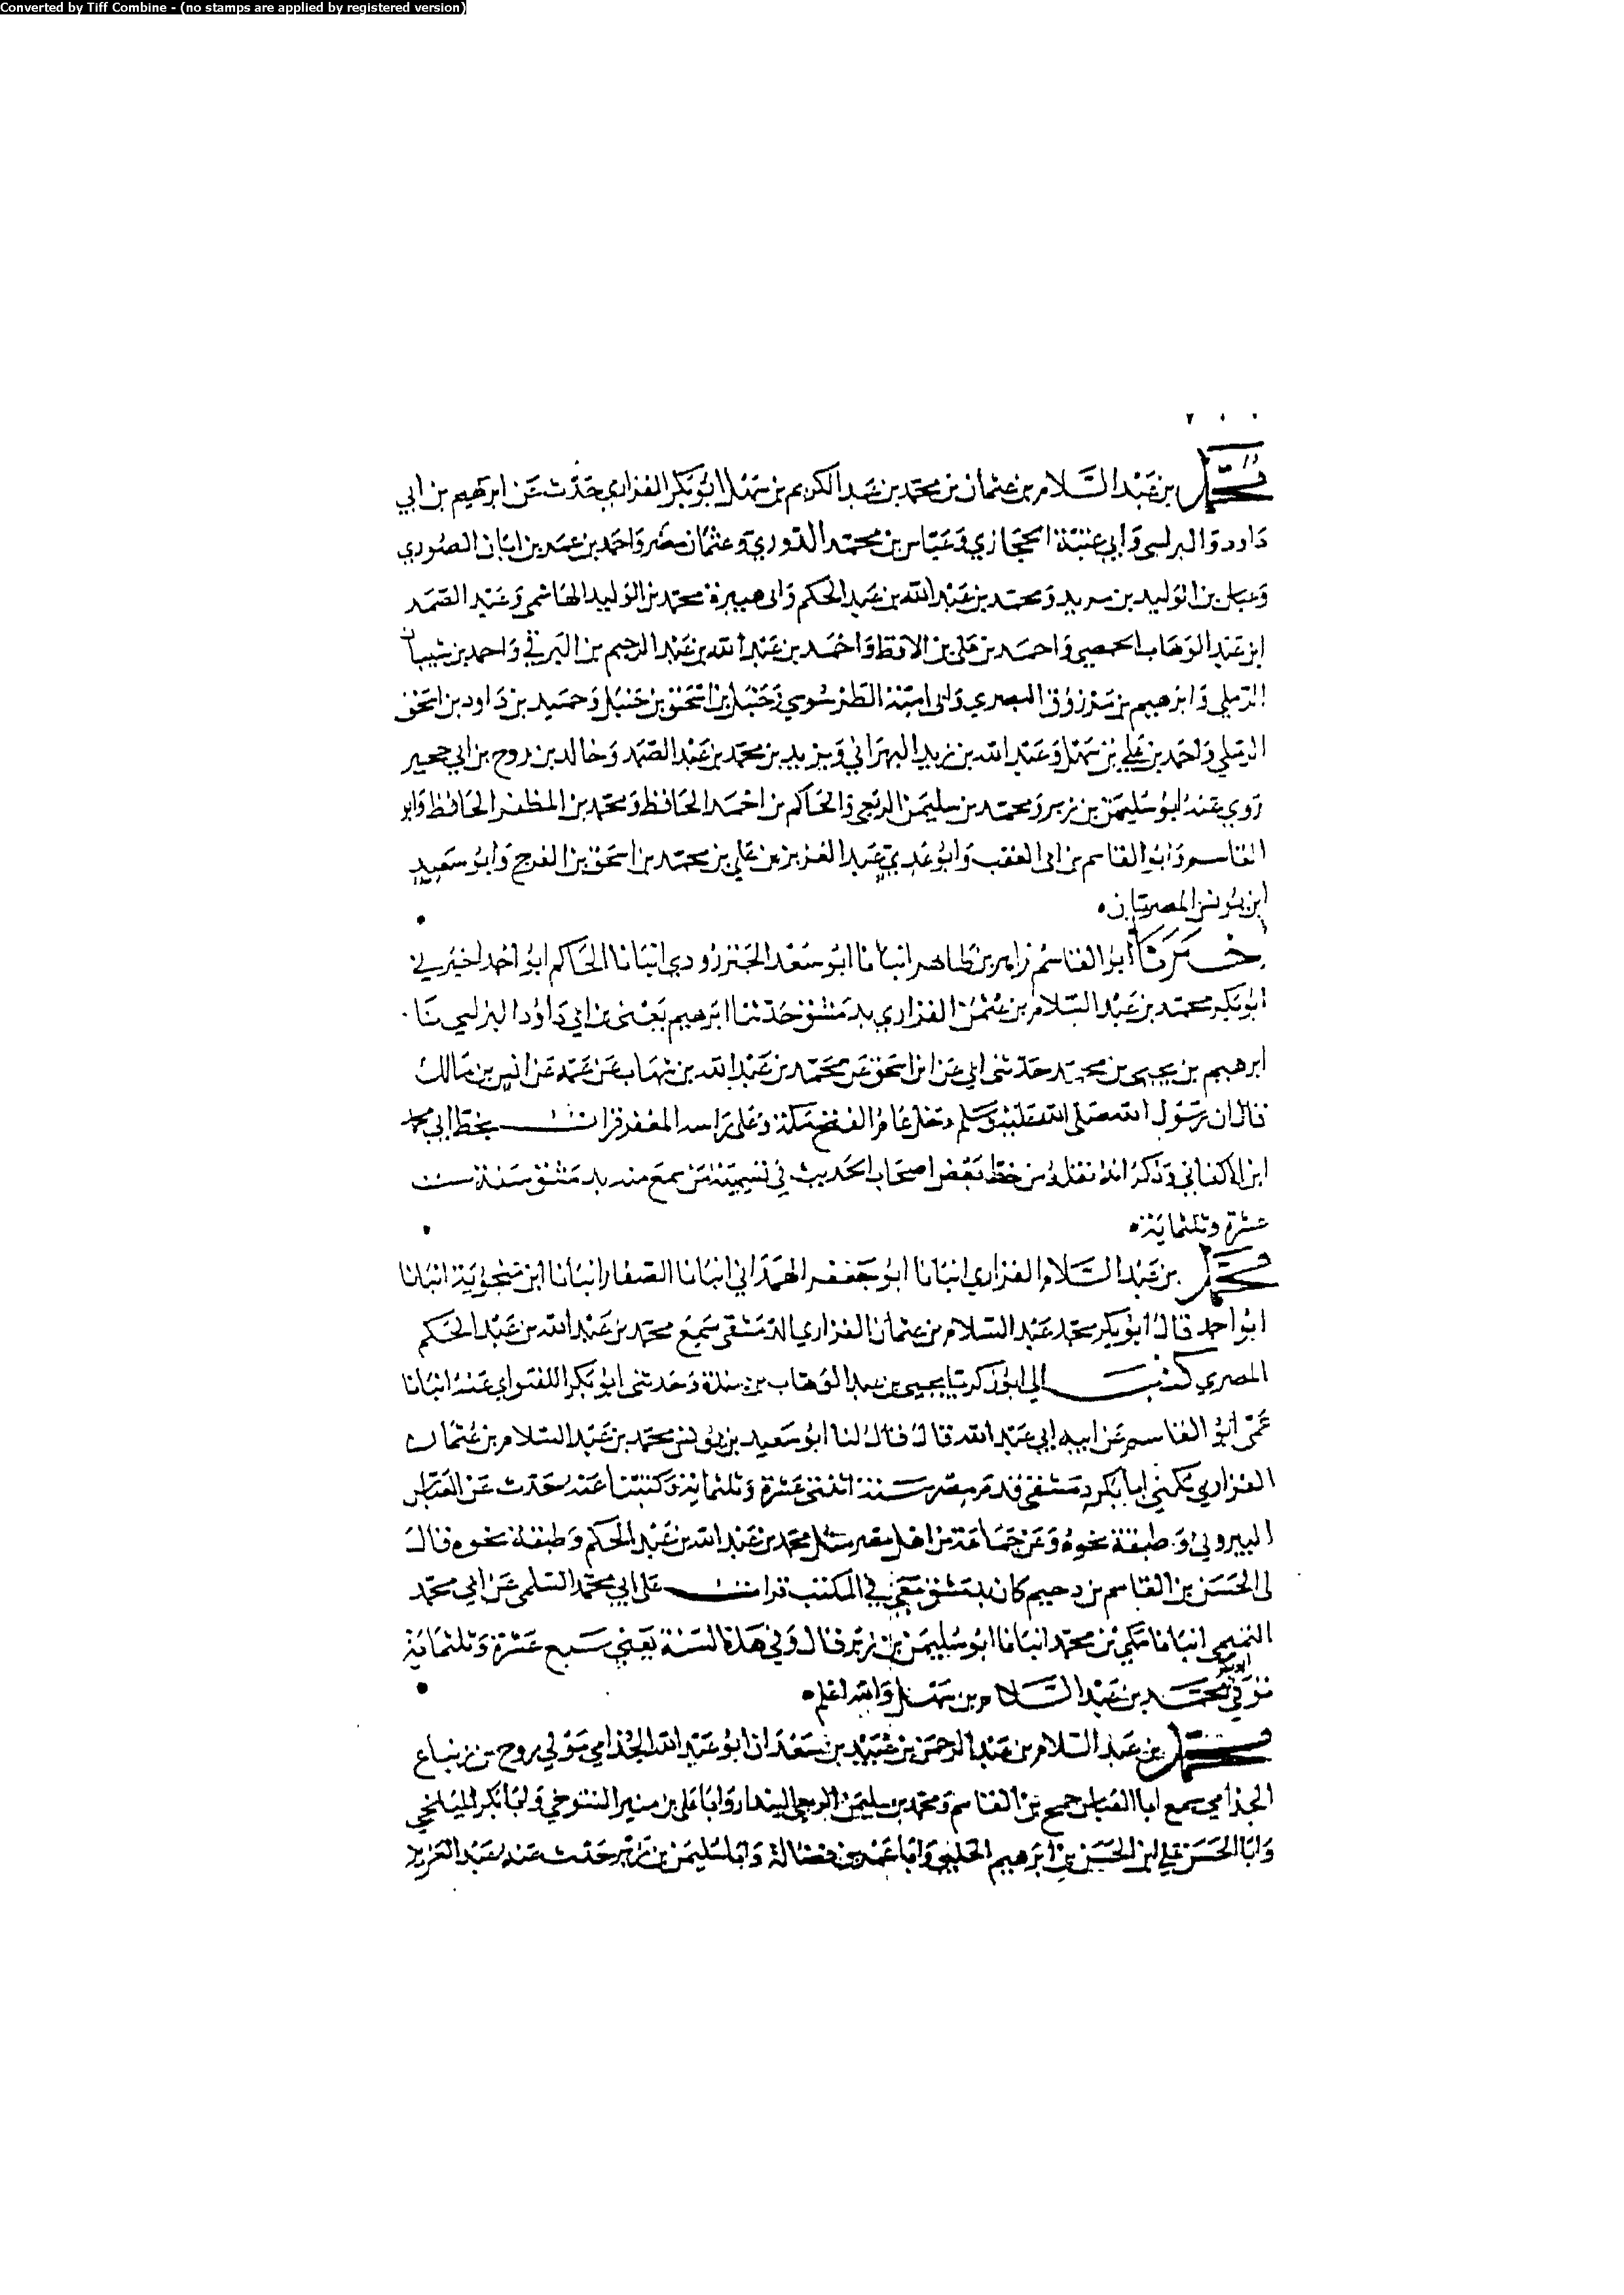 Converted by Tiff Combine - (no stamps are applied by registered version)
محمد بن عبد السلام بن عثمان بن محمد بن عبد الكريم بن سهل ابو بكر الفزاري حدث عن ابرهيم بن ابي
داود البرلسي وابي عتبة الحجازي وعباس بن محمد الدوري واحمد بن عمر بن ابان الصوري
وعباس بن الوليد بن مزيد ومحمد بن عبد الله بن عبد الحكم وابي هبيرة محمد بن الوليد الهاشمي وعبد الصمد
ابن عبد الوهاب الحمصي واحمد بن علي بن واحمد بن عبد الله بن عبد الرحيم بن البرقي واحمد بن شيبان
الرملي وابرهيم بن مرزوق البصري وابي امية الطرسوسي وحنبل بن اسحق بن حنبل وحميد بن داود بن اسحق
الرملي واحمد بن علي بن سهل وعبد الله بن زيد البهراني ويزيد بن محمد بن عبد الصمد وخالد بن روح بن ابي حجير
روي عنه ابو سليمن بن زبر ومحمد بن سليمن الربعي والحاكم بن احمد الحافظ ومحمد بن المظفر الحافظ وابو
القاسم وابو القاسم بن ابي العقب وابو عدي عبد العزيز بن علي بن محمد بن اسحق بن الفرج وابو سعيد
ابن يونس المصريان
اخبرنا ابو القاسم زاهر بن طاهر انبانا ابو سعد الجنزرودي انبانا الحاكم ابو احمد اخبرني
ابو بكر محمد بن عبد السلام بن عثمن الفزاري بدمشق حدثنا ابرهيم يعني بن ابي داود البرلسي نا
ابرهيم بن يحيى بن محمد حدثني ابي عن ابن اسحق عن محمد بن عبد الله بن شهاب عن عمه عن انس بن مالك
قال ان رسول الله صلى الله عليه وسلم دخل عام الفتح مكة وعلى راسه المغفر قرات بخط ابي محمد
ابن الاكفاني وذكر انه نقله من خط بعض اصحاب الحديث في تسمية من سمع منه بدمشق سنة ست
عشرة وثلثماية
محمد بن عبد السلام الفزاري انبانا ابو جعفر الهمذاني انبانا الصفار انبانا ابن منجوية انبانا
ابو احمد قال ابو بكر محمد عبد السلام بن عثمان الفزاري الدمشقي سمع محمد بن عبد الله بن عبد الحكم
المصري كتب الي ابو زكريا يحيى بن عبد الوهاب بن مندة وحدثني ابو بكر اللفتواي عنه انبانا
عمي ابو القاسم عن ابيه ابي عبد الله قال قال لنا ابو سعيد بن يونس محمد بن عبد السلام بن عثمان
الفزاري يكنى ابا بكر دمشقي قدم مصر سنة اثنتي عشرة وثلثماية وكتبنا عنه حدث عن العباس
البيروني وطبقة نحوه وعن جماعة من اهل مصر مثل محمد بن عبد الله بن عبد الحكم وطبقة نحوه قال
لي الحسن بن القاسم بن دحيم كان بدمشق معي في المكتب قرات على ابي محمد السلمي عن ابي محمد
التميمي انبانا مكي بن محمد انبانا ابو سليمن بن زبر قال وفي هذه السنة يعني سبع عشرة وثلثماية
توفي ابو بكر محمد بن عبد السلام بن سهل والله اعلم
محمد بن عبد السلام بن عبد الرحمن بن عبيد بن سعدان ابو عبد الله الجذامي مولي روح بن زنباع
الجذامي سمع ابا العباس جمح بن القاسم ومحمد بن سليمن الربعي البندار وابا علي بن منير التنوخي وابا بكر الميانجي
وابا الحسن علي ابن الحسن بن ابرهيم الحلبي وابا عمر بن فضالة وابا سليمن بن زبر حدث عنه عبد العزيز